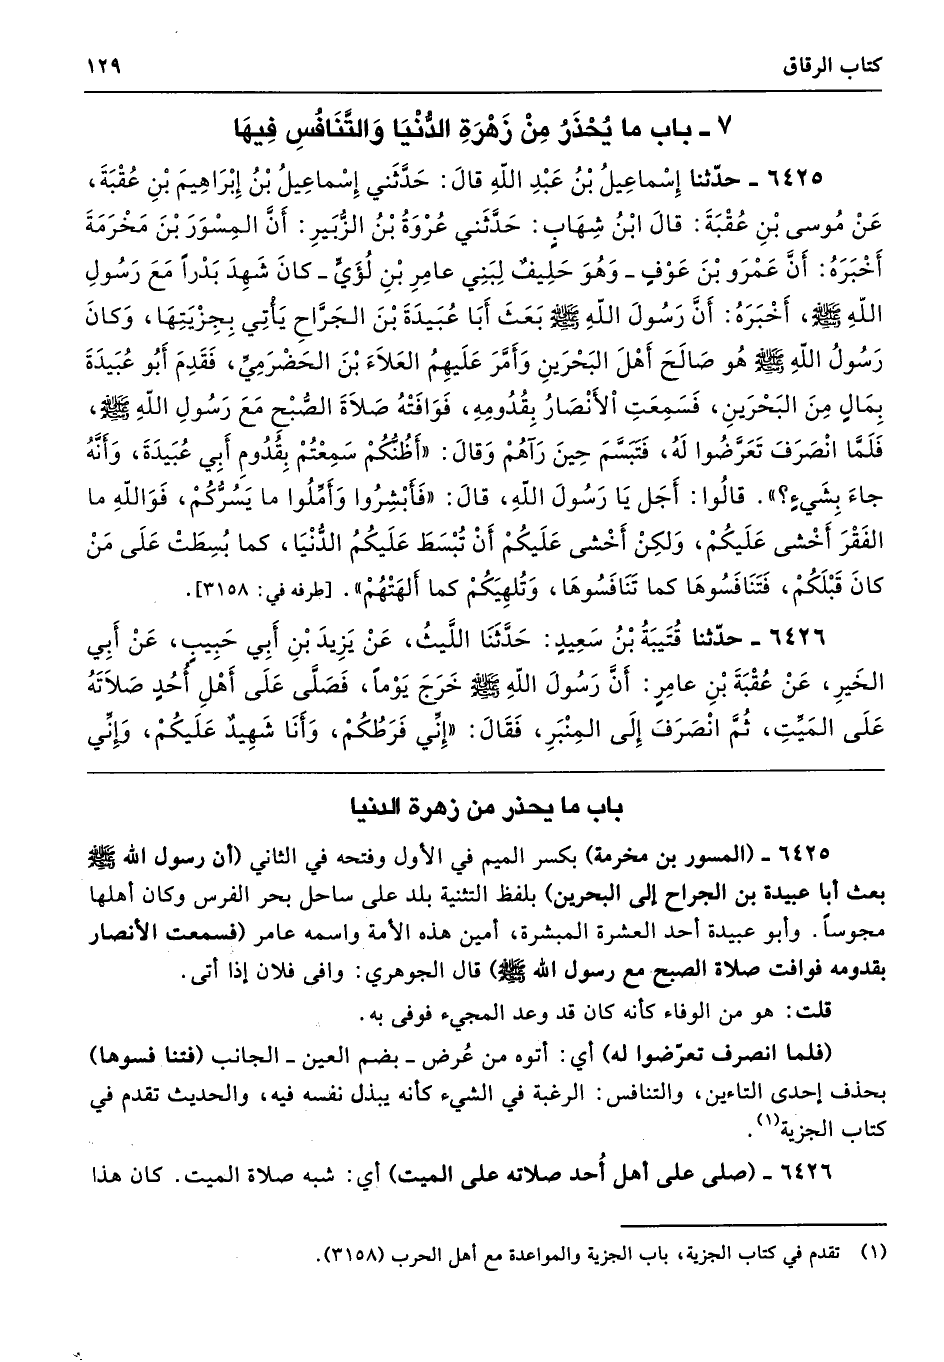 كتاب الرقاق ١٢٩
٧ ـ باب ما يُحْذَرُ مِنْ زَهْرَةِ الدُّنْيَا وَالتَّنَافُسِ فِيهَا
٦٤٢٥ ـ حدّثنا إِسْماعِيلُ بْنُ عَبْدِ اللّهِ قالَ: حَدَّثَني إِسْماعِيلُ بْنُ إِبْرَاهِيمَ بْنِ عُقْبَةَ،
عَنْ مُوسى بْنِ عُقْبَةَ: قالَ ابْنُ شِهَابٍ: حَدَّثَني عُرْوَةُ بْنُ الزُّبَيرِ: أَنَّ المِسْوَرَ بْنَ مَخْرَمَةَ
أَخْبَرَهُ: أَنَّ عَمْرَو بْنَ عَوْفٍ ـ وَهُوَ حَلِيفٌ لِبَنِي عامِرِ بْنِ لُؤَيٍّ ـ كانَ شَهِدَ بَدْراً مَعَ رَسُولِ
اللّهِ ﷺ، أَخْبَرَهُ: أَنَّ رَسُولَ اللّهِ ﷺ بَعَثَ أَبَا عُبَيدَةَ بْنَ الجَرَّاحِ يَأْتِي بِجِزْيَتِهَا، وَكانَ
رَسُولُ اللّهِ ﷺ هُو صَالَحَ أَهْلَ البَحْرَينِ وَأَمَّرَ عَلَيهِمُ العَلاَءَ بْنَ الحَضْرَمِيِّ، فَقَدِمَ أَبُو عُبَيدَةَ
بِمَالٍ مِنَ البَحْرَينِ، فَسَمِعَتِ الأَنْصَارُ بِقُدُومِهِ، فَوَافَتْهُ صَلاَةَ الصُّبْحِ مَعَ رَسُولِ اللّهِ ﷺ،
فَلَمَّا انْصَرَفَ تَعَرَّضُوا لَهُ، فَتَبَسَّمَ حِينَ رَآهُمْ وَقالَ: «أَظُنُّكُمْ سَمِعْتُمْ بِقُدُومِ أَبِي عُبَيدَةَ، وَأَنَّهُ
جاءَ بِشَيءٍ؟». قالُوا: أَجَل يَا رَسُولَ اللّهِ، قالَ: «فَأَبْشِرُوا وَأَمِّلُوا ما يَسُرُّكُمْ، فَوَاللّهِ ما
الفَقْرَ أَخْشى عَلَيكُمْ، وَلكِنْ أَخْشى عَلَيكُمْ أَنْ تُبْسَطَ عَلَيكُمُ الدُّنْيَا، كما بُسِطَتْ عَلَى مَنْ
كانَ قَبْلَكُمْ، فَتَنَافَسُوهَا كما تَنَافَسُوهَا، وَتُلهِيَكُمْ كما أَلهَتْهُمْ». [طرفه في: ٣١٥٨].
٦٤٢٦ ـ حدّثنا قُتَيبَةُ بْنُ سَعِيدٍ: حَدَّثَنَا اللَّيثُ، عَنْ يَزِيدَ بْنِ أَبِي حَبِيبٍ، عَنْ أَبِي
الخَيرِ، عَنْ عُقْبَةَ بْنِ عامِرٍ: أَنَّ رَسُولَ اللّهِ ﷺ خَرَجَ يَوْماً، فَصَلَّى عَلَى أَهْلِ أُحُدٍ صَلاَتَهُ
عَلَى المَيِّتِ، ثُمَّ انْصَرَفَ إِلَى المِنْبَرِ، فَقَالَ: «إِنِّي فَرَطُكُمْ، وَأَنَا شَهِيدٌ عَلَيكُمْ، وَإِنِّي
باب ما يحذر من زهرة الدنيا
٦٤٢٥ ـ (المسور بن مخرمة) بكسر الميم في الأول وفتحه في الثاني (أن رسول الله ﷺ
بعث أبا عبيدة بن الجراح إلى البحرين) بلفظ التثنية بلد على ساحل بحر الفرس وكان أهلها
مجوساً. وأبو عبيدة أحد العشرة المبشرة، أمين هذه الأمة واسمه عامر (فسمعت الأنصار
بقدومه فوافت صلاة الصبح مع رسول الله ﷺ) قال الجوهري: وافى فلان إذا أتى.
قلت: هو من الوفاء كأنه كان قد وعد المجيء فوفى به.
(فلما انصرف تعرّضوا له) أي: أتوه من عُرض ـ بضم العين ـ الجانب (فتنا فسوها)
بحذف إحدى التاءين، والتنافس: الرغبة في الشيء كأنه يبذل نفسه فيه، والحديث تقدم في
كتاب الجزية(١).
٦٤٢٦ ـ (صلى على أهل أُحد صلاته على الميت) أي: شبه صلاة الميت. كان هذا
(١) تقدم في كتاب الجزية، باب الجزية والمواعدة مع أهل الحرب (٣١٥٨).